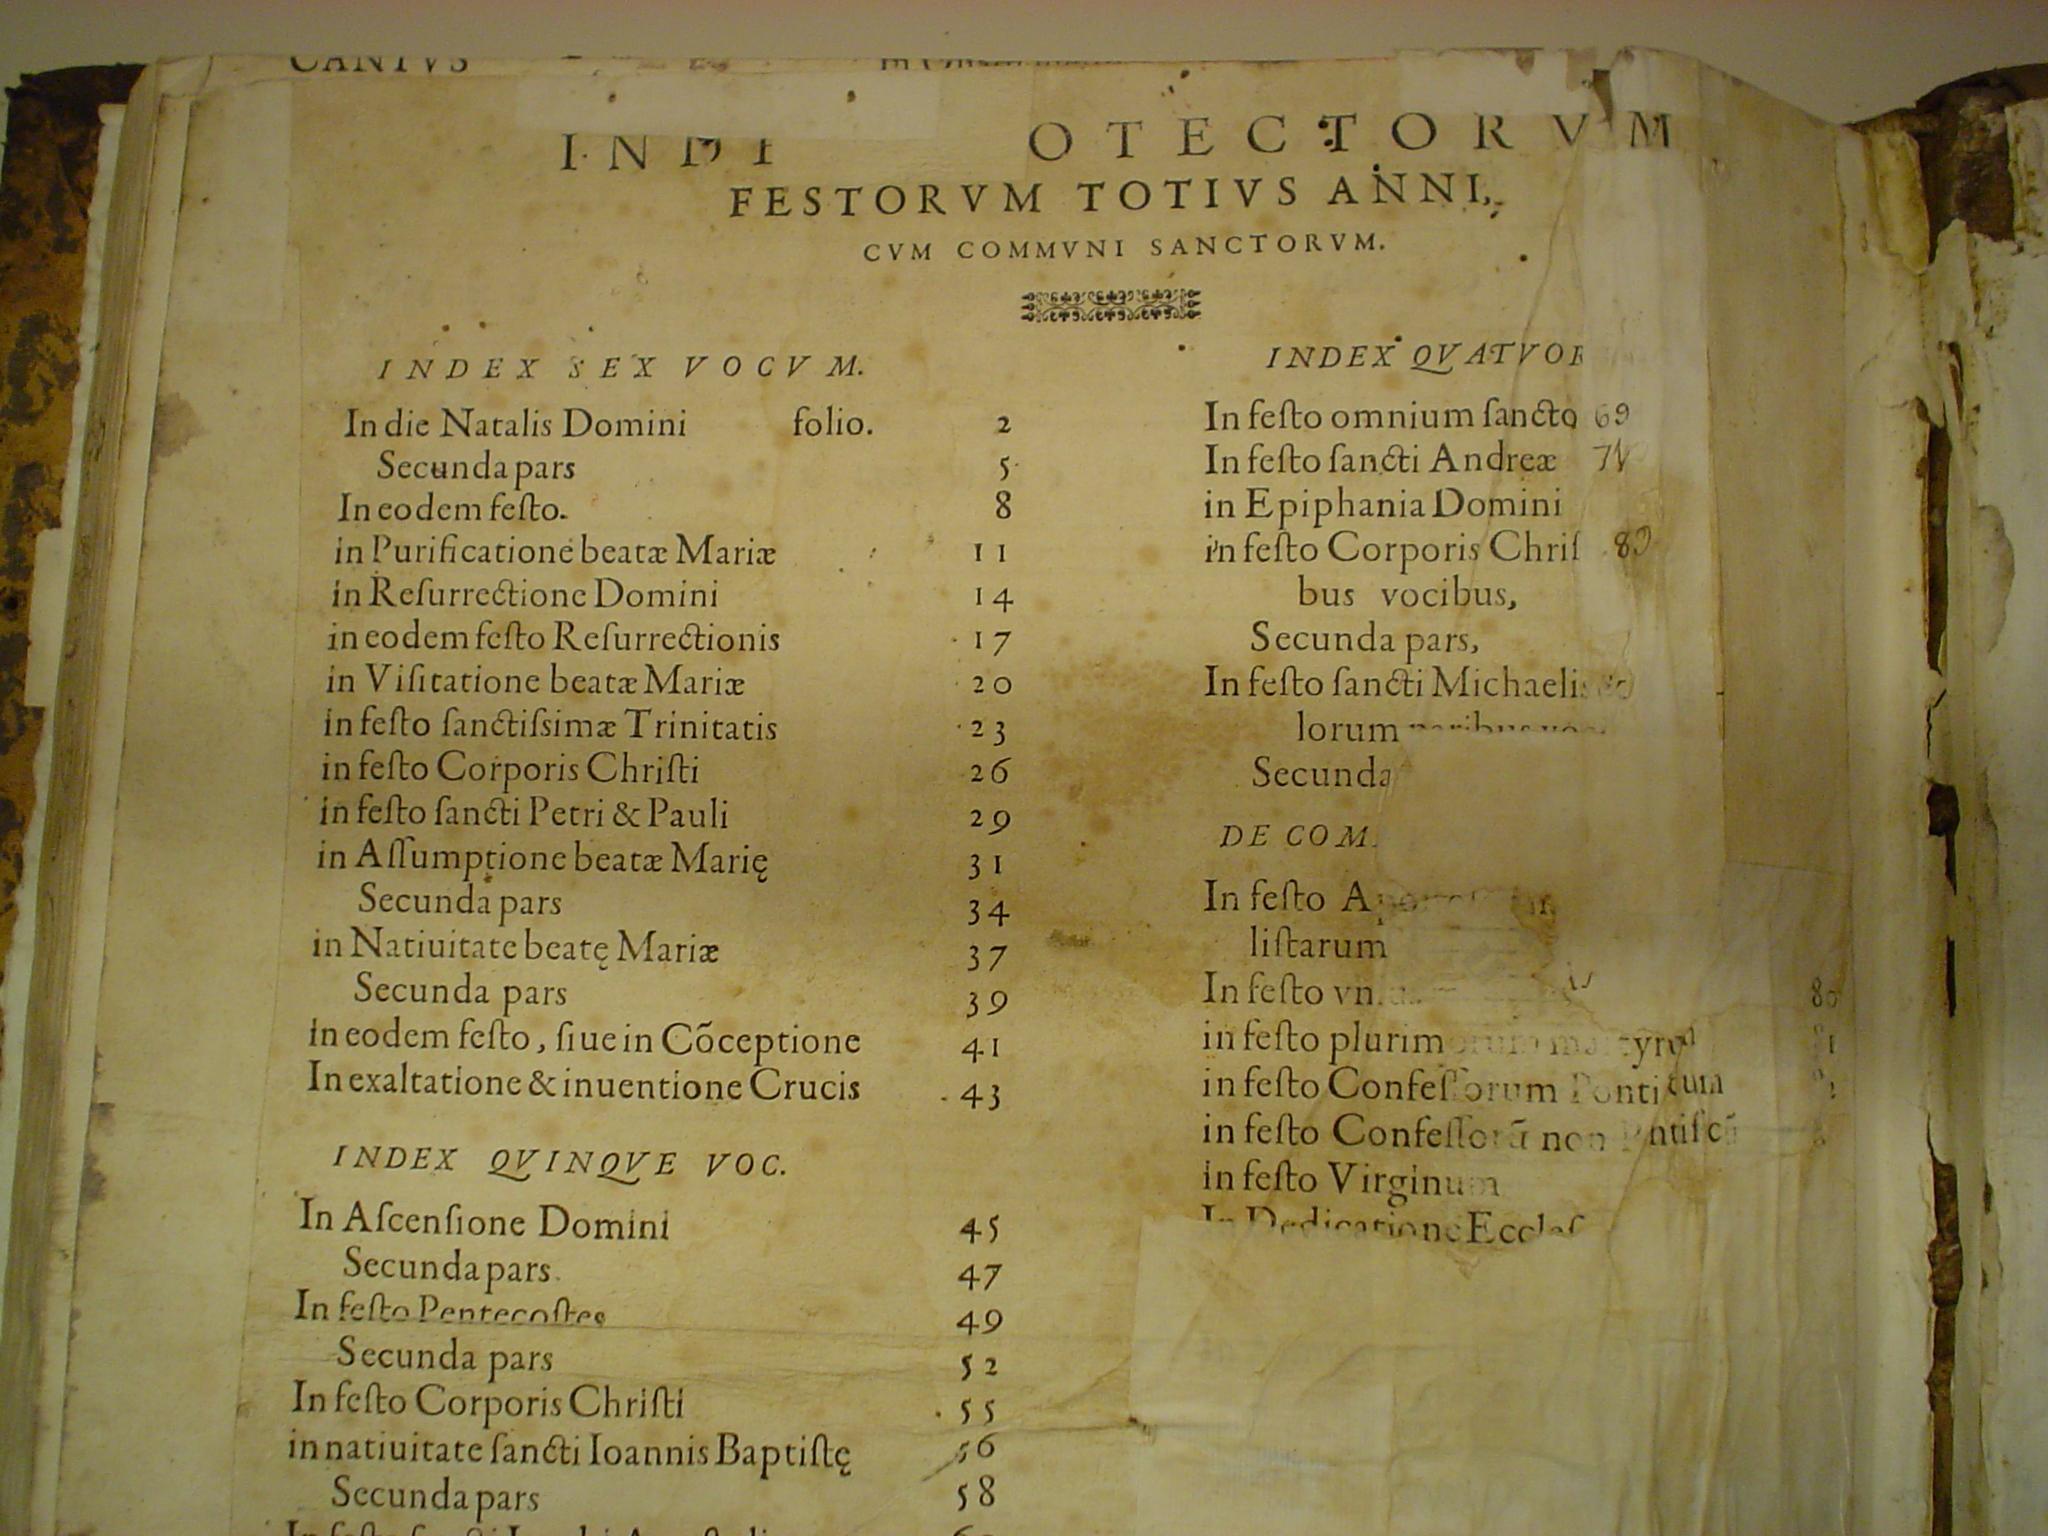 CANTVS
OTECTORVM
FESTORVM TOTIVS ANNI,
CVM COMMVNI SANCTORVM.
INDEX SEX VOCVM.
In die Natalis Domini folio. 2
Secunda pars 5
In eodem feſto. 8
in Purificatione beatæ Mariæ 11
in Reſurrectione Domini 14
in eodem feſto Reſurrectionis 17
in Viſitatione beatæ Mariæ 20
in feſto ſanctiſsimæ Trinitatis 23
in feſto Corporis Chriſti 26
in feſto ſancti Petri & Pauli 29
in Aſſumptione beatæ Marię 31
Secunda pars 34
in Natiuitate beatę Mariæ 37
Secunda pars 39
in eodem feſto, ſiue in Cõceptione 41
In exaltatione & inuentione Crucis 43
INDEX QVINQVE VOC.
In Aſcenſione Domini 45
Secunda pars. 47
In feſto Pentecoſtes 49
Secunda pars 52
In feſto Corporis Chriſti 55
in natiuitate ſancti Ioannis Baptiſtę 56
Secunda pars 58
INDEX QVATVOR
In feſto omnium ſancto 69
In feſto ſancti Andreæ
in Epiphania Domini
in feſto Corporis Chriſ 80
bus vocibus,
Secunda pars,
In feſto ſancti Michaelis
lorum
Secunda
DE COM.
In feſto
liſtarum
In feſto vn 80
in feſto plurimorum martyrū
in feſto Confeſſorum
in feſto Confeſſorū non
in feſto Virginum
In Dedicatione Eccleſ